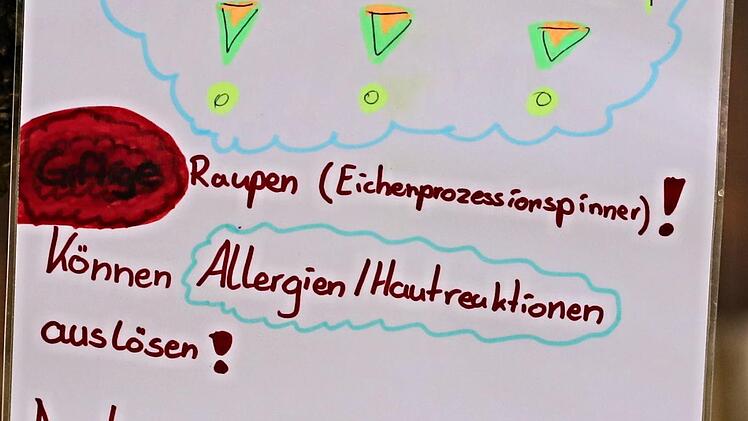 Giftige Raupen (Eichenprozessionspinner)!
Können Allergien/Hautreaktionen
auslösen!